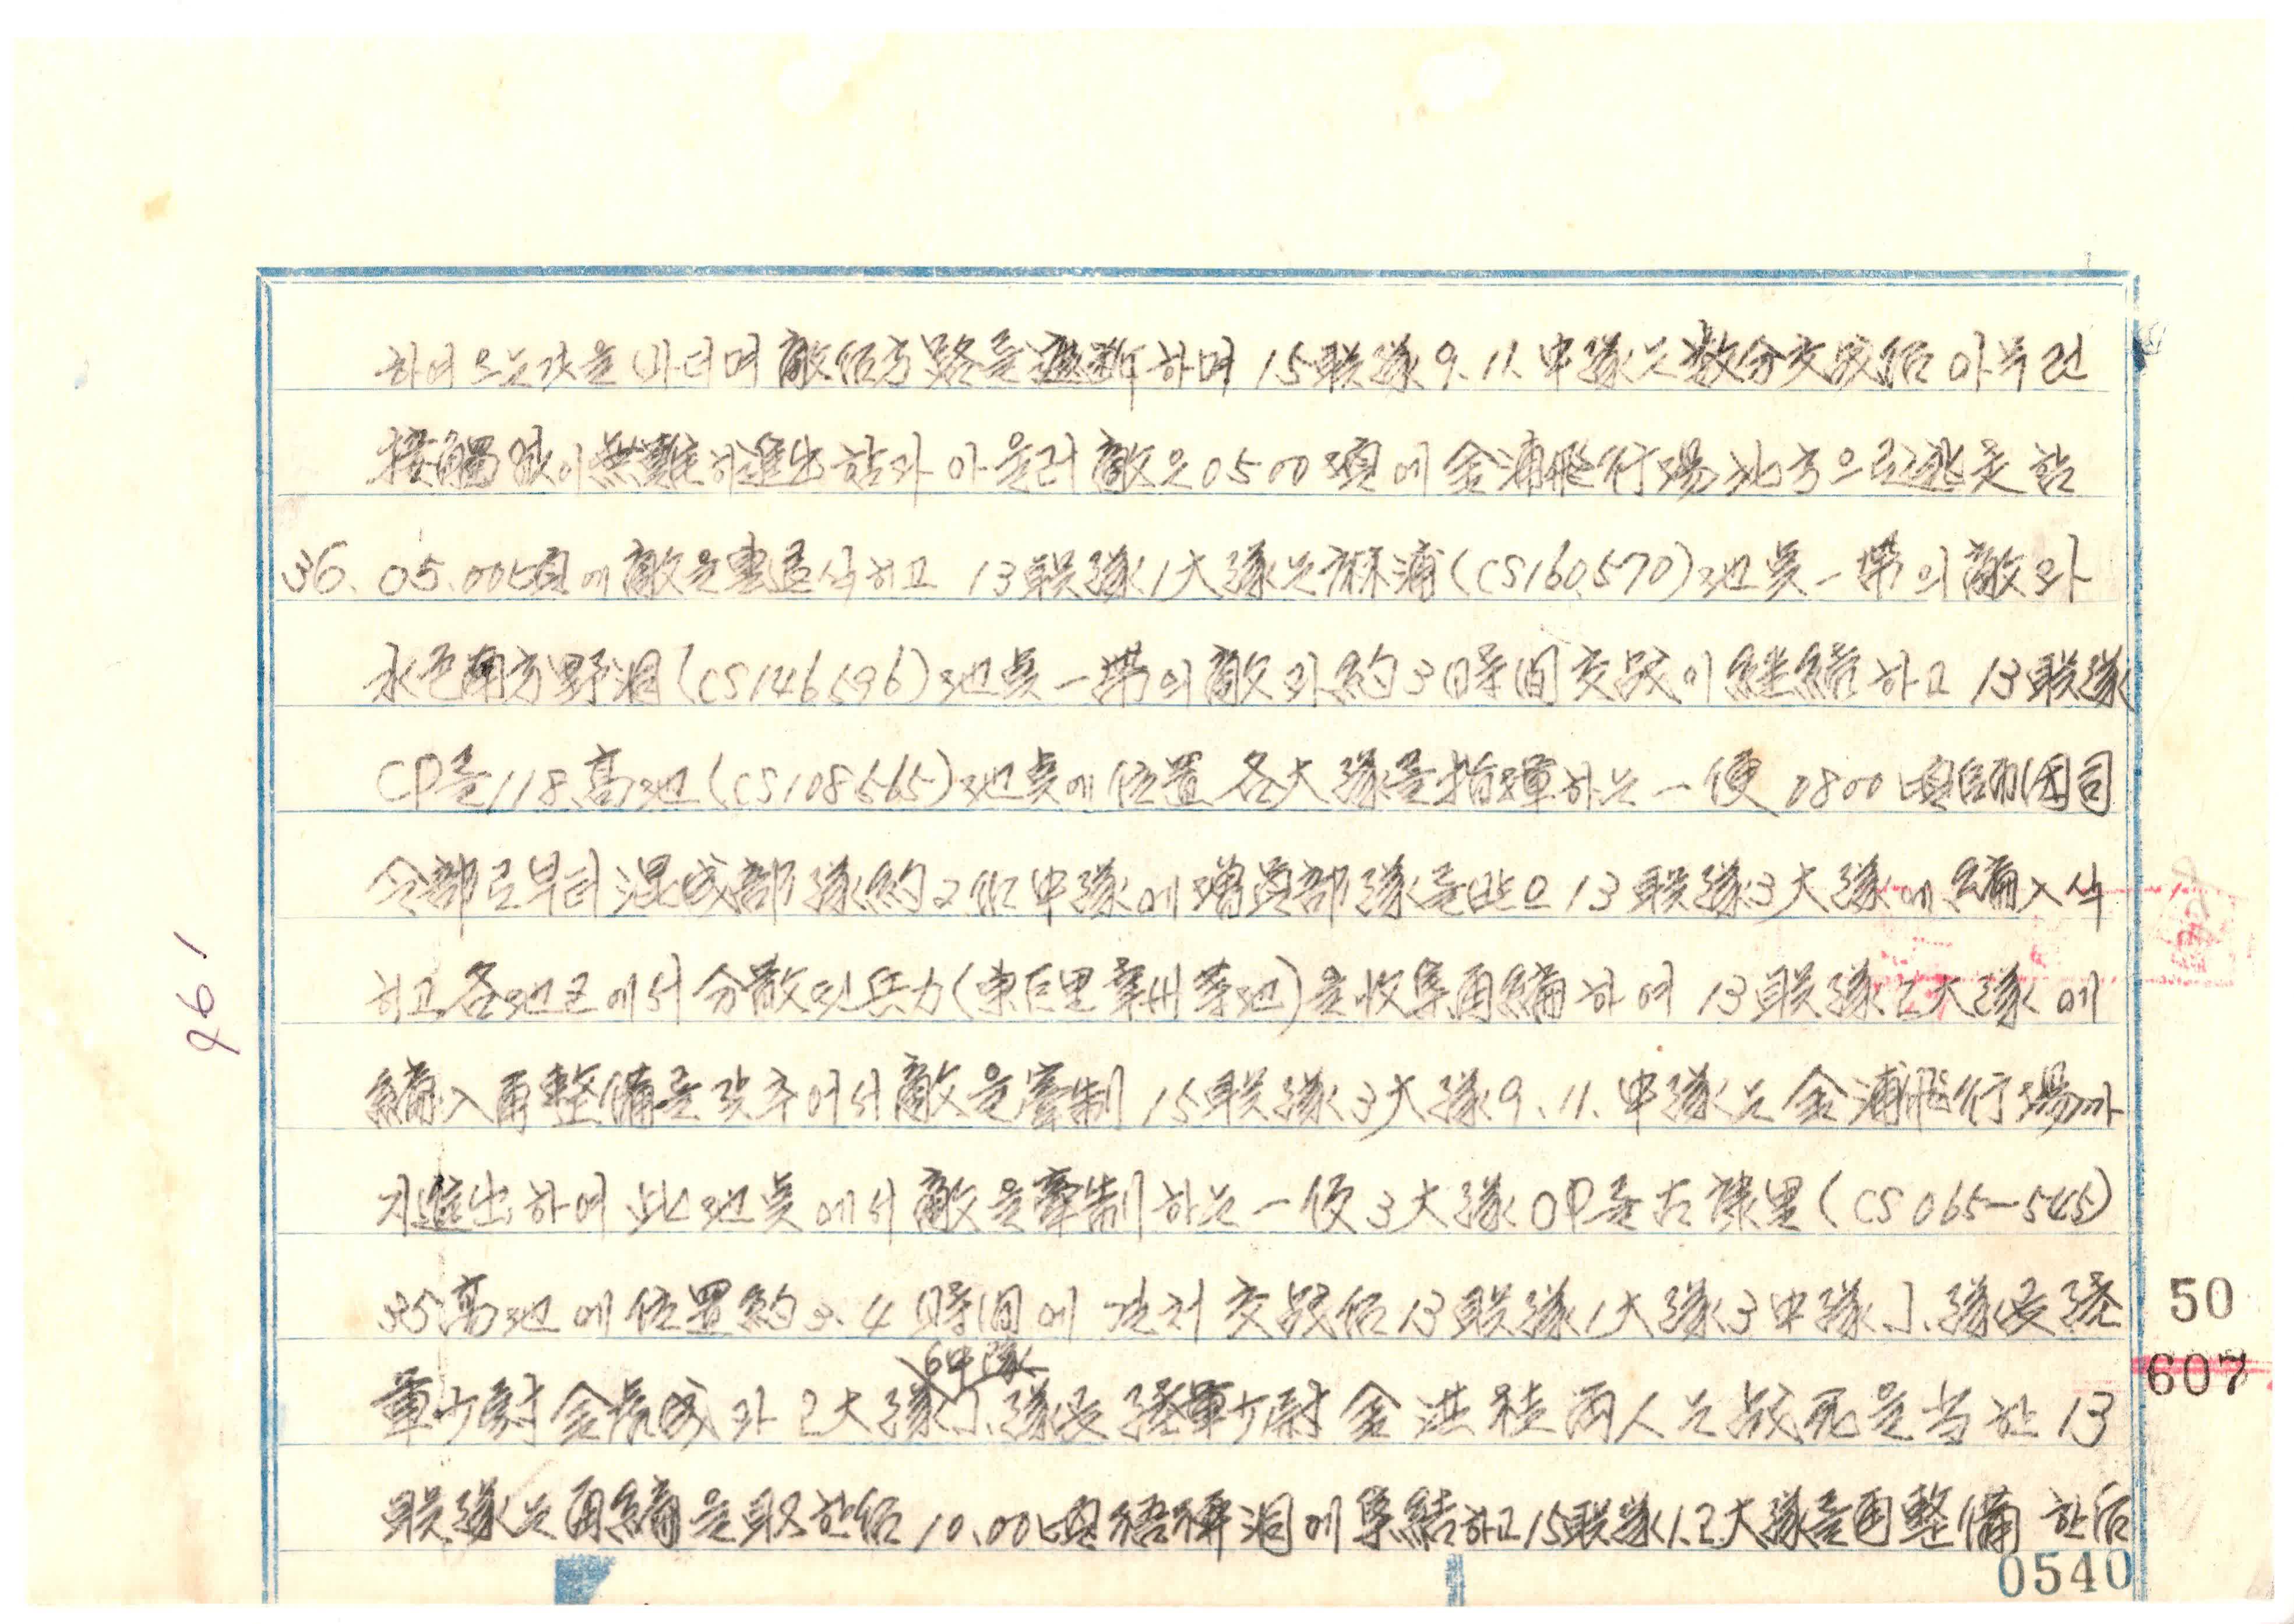 하여오는것을 바더며 敵后方路을 遮断하며 15联隊 9. 11. 中隊는 数分交战后 아무런
接觸 없이 無難히 進出함과 아울러 敵은 0500頃에 金浦飛行場 北方으로 逃走함
36. 05.00頃에 敵을 식히고 13联隊 1大隊는 麻浦(CS160.570)地点一帶의 敵과
水色南方 野洞(CS146596)地点一帶의 敵과 約3時間 交战이 継續하고 13联隊
CP를 118高地(CS108565)地点에 位置 各大隊를 指揮하는 一便 0800頃 師団司
令部로부터 混成部隊 約2個中隊에 增員部隊를 받으 13联隊 3大隊에 編入식
히고 各地区에서 分散된 兵力(東巨里 幸州 等地)을 收集 再編하여 13联隊 2大隊에
編入 再整備를 갖추어서 敵을 牽制 15联隊 3大隊 9. 11. 中隊는 金浦飛行場까
지 進出하여 此地点에서 敵을 牽制하는 一便 3大隊 OP를 (CS065-545)
35高地에 位置 約3. 4時間에 걸처 交战后 13联隊 1大隊 3中隊 小隊長 陸
軍少尉 金 와 2大隊 6中隊 小隊長 陸軍少尉 金洪 両人는 战死를 当한 13
联隊는 再編을 取한后 10.00頃 洞에 集結하고 15联隊 1.2大隊를 再整備 한后
961
50
607
0540